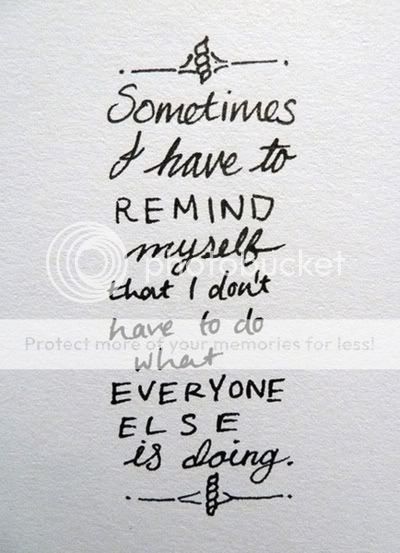 Sometimes
I have to
REMIND
myself
photobucket
that I don't
have to do
Protect more of your memories for less!
what
EVERYONE
ELSE
is doing.